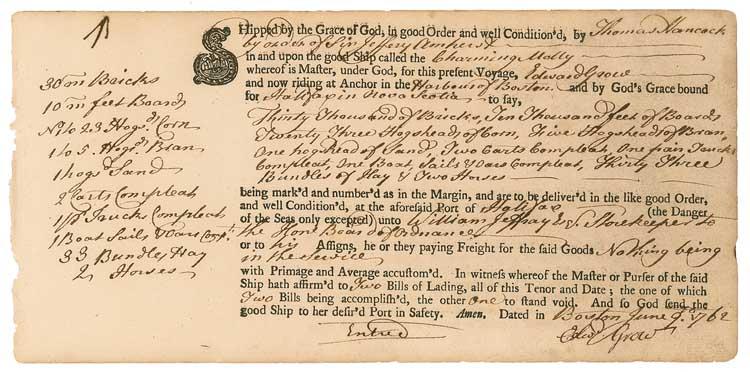 1
30 m Bricks
10 m feet Boards
No 1 to 23 Hogsds. Corn
1 to 5 Hogsds. Bran
1 hogsd Sand
2 Carts Compleat
1 pr Trucks Compleat
1 Boat Sails & Oars Compt.
33 Bundles Hay
2 Horses
SHipped by the Grace of God, in good Order and well Condition'd, by Thomas Hancock
by order of Sir Jeffery Amherst
in and upon the good Ship called the Charming Molly
whereof is Master, under God, for this present Voyage, Edward Grow
and now riding at Anchor in the Harbour of Boston and by God's Grace bound
for Hallifax in Nova Scotia to say,
Thirty Thousand of Bricks, Ten Thousand feet of Boards
Twenty Three Hogsheads of Corn, Five Hogsheads of Bran,
One hogshead of Sand, Two Carts Compleat, One pair Trucks
Compleat, One Boat, Sails & Oars Compleat, Thirty Three
Bundles of Hay & Two Horses
being mark'd and number'd as in the Margin, and are to be deliver'd in the like good Order,
and well Condition'd, at the aforesaid Port of Halifax (the Danger
of the Seas only excepted) unto William Jeffray Esq Storekeeper to
the Honl. Board of Ordnance
or to his Assigns, he or they paying Freight for the said Goods Nothing being
in the Service
with Primage and Average accustom'd. In witness whereof the Master or Purser of the said
Ship hath affirm'd to Two Bills of Lading, all of this Tenor and Date; the one of which
Two Bills being accomplish'd, the other one to stand void. And so God send the
good Ship to her desir'd Port in Safety. Amen. Dated in Boston June 9. 1762
Entred Edwd Grow